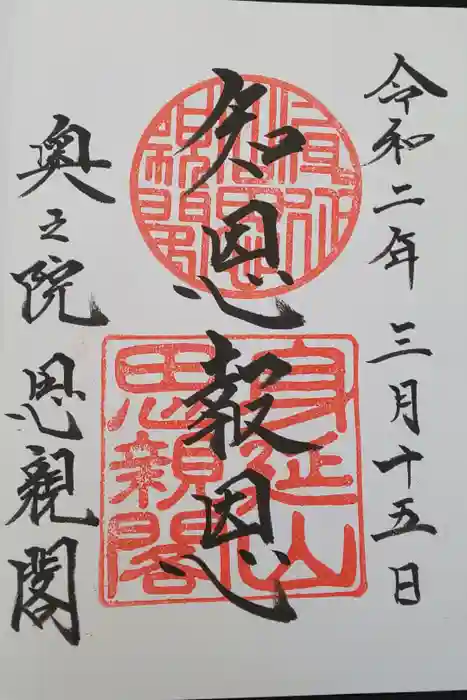 令和二年三月十五日
知恩報恩
奥之院恩親閣
身延山
思親閣